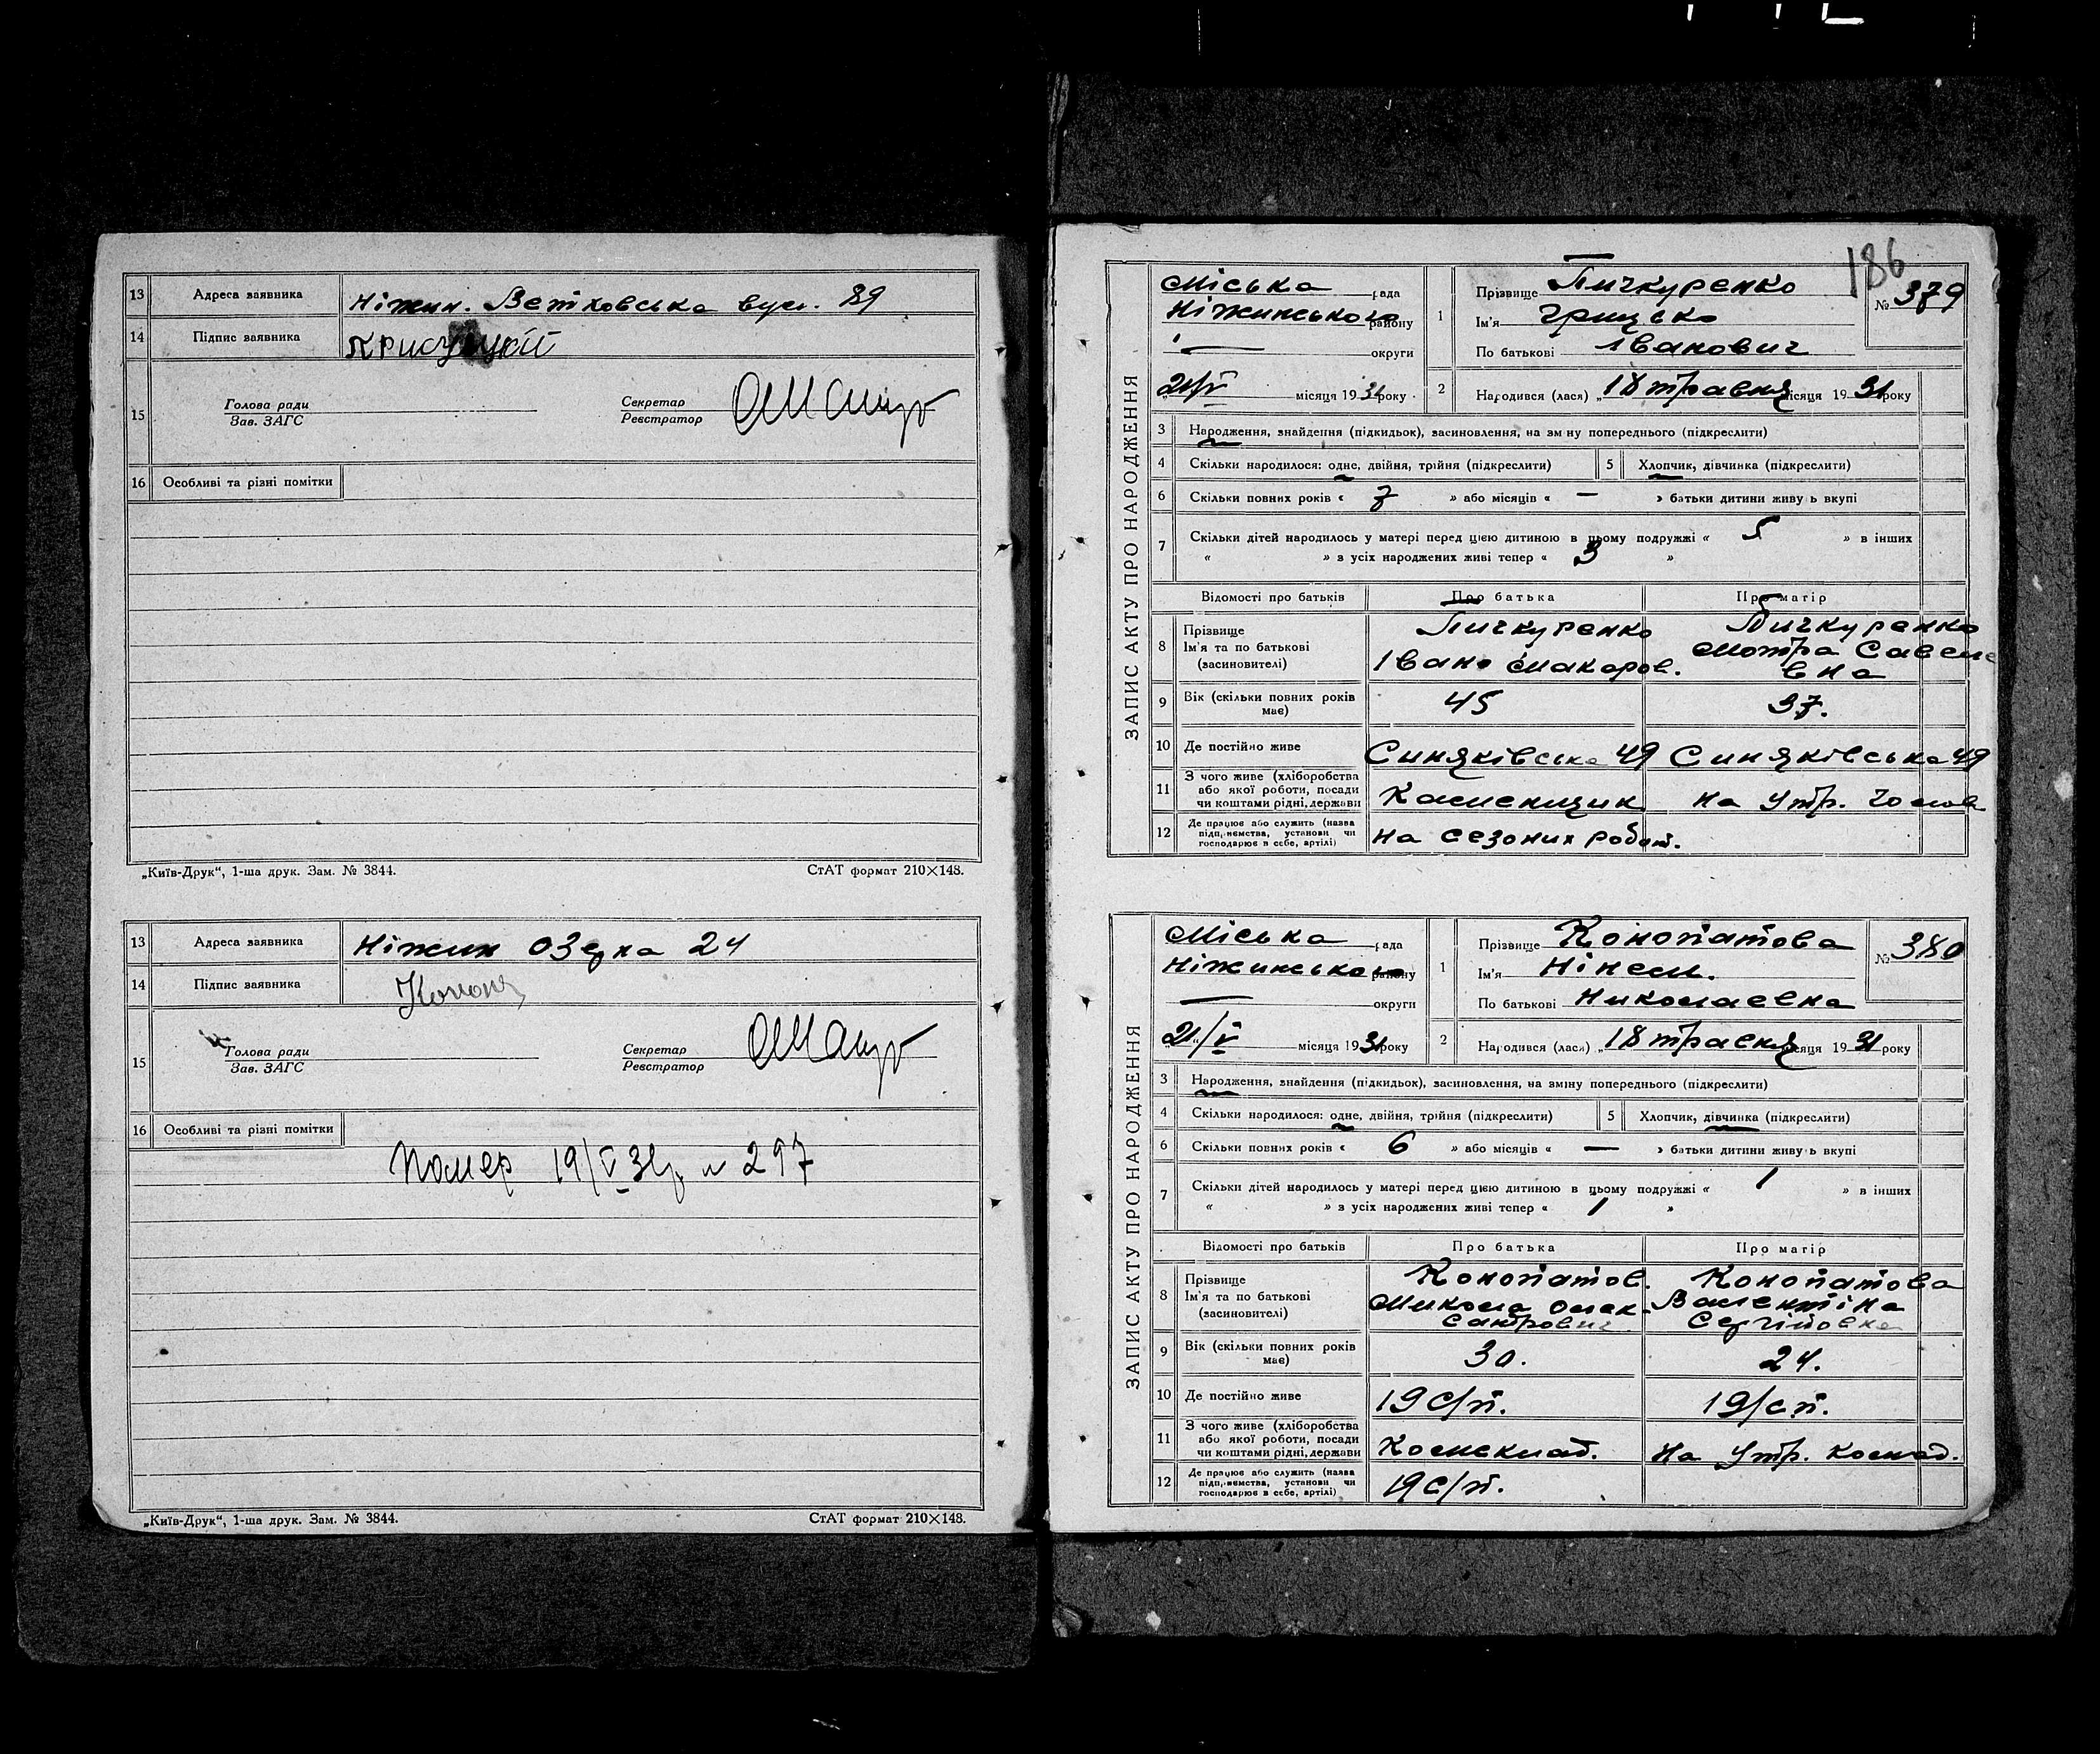 13 Адреса заявника Ніжин. Ветховська вул. 89
14 Підпис заявника
15 Голова ради Секретар
Зав. ЗАГС Реєстратор
16 Особливі та різні помітки
„Київ-Друк“, 1-ша друк. Зам. № 3844. СтАТ формат 210×148.
13 Адреса заявника Ніжин
24
14 Підпис заявника
15 Голова ради Секретар
Зав. ЗАГС Реєстратор
16 Особливі та різні помітки
Помер 19/V 31р. № 297
„Київ-Друк“, 1-ша друк. Зам. № 3844. СтАТ формат 210×148.
186
ЗАПИС АКТУ ПРО НАРОДЖЕННЯ
Міська рада
Ніжинського району
округи
21/V місяця 1931 року
1 Прізвище Пичкуренко № 379
Ім'я Грицько
По батькові Іванович
2 Народився (лася) „18 травня місяця 1931 року
3 Народження, знайдення (підкидьок), засиновлення, на зміну попереднього (підкреслити)
4 Скільки народилося: одне, двійня, трійня (підкреслити) 5 Хлопчик, дівчинка (підкреслити)
6 Скільки повних років « 7 » або місяців « — » батьки дитини живуь вкупі
7 Скільки дітей народилось у матері перед цією дитиною в цьому подружжі « 5 » в інших
« » з усіх народжених живі тепер « 3 »
Відомості про батьків Про батька Про матір
8 Прізвище Пичкуренко Пичкуренко
Ім'я та по батькові Мотра Савели
(засновителі) Іван Макаров. вна
9 Вік (скільки повних років має) 45 37.
10 Де постійно живе Синяківська 49 Синяківська 49
11 З чого живе (хліборобства
або якої роботи, посади
чи коштами рідні, держави Каменщик На утр. чолов
12 Де працює або служить (назва
підприємства, установи чи
господарює в себе, артілі) на сезоних робот.
ЗАПИС АКТУ ПРО НАРОДЖЕННЯ
Міська рада
Ніжинського району
округи
21/V місяця 1931 року
1 Прізвище Конопатова № 380
Ім'я Нінель.
По батькові Николаевна
2 Народився (лася) „18 травня місяця 1931 року
3 Народження, знайдення (підкидьок), засиновлення, на зміну попереднього (підкреслити)
4 Скільки народилося: одне, двійня, трійня (підкреслити) 5 Хлопчик, дівчинка (підкреслити)
6 Скільки повних років « 6 » або місяців « — » батьки дитини живуь вкупі
7 Скільки дітей народилось у матері перед цією дитиною в цьому подружжі « 1 » в інших
« » з усіх народжених живі тепер « 1 »
Відомості про батьків Про батька Про матір
8 Прізвище Конопатов. Конопатова
Ім'я та по батькові Микола Олек- Валентіна
(засиновителі) сандрович Сергіївна
9 Вік (скільки повних років має) 30. 24.
10 Де постійно живе 19 с/п. 19/с п.
11 З чого живе (хліборобства
або якої роботи, посади
чи коштами рідні, держави На утр.
12 Де працює або служить (назва
підприємства, установи чи
господарює в себе, артілі) 19 с/п.